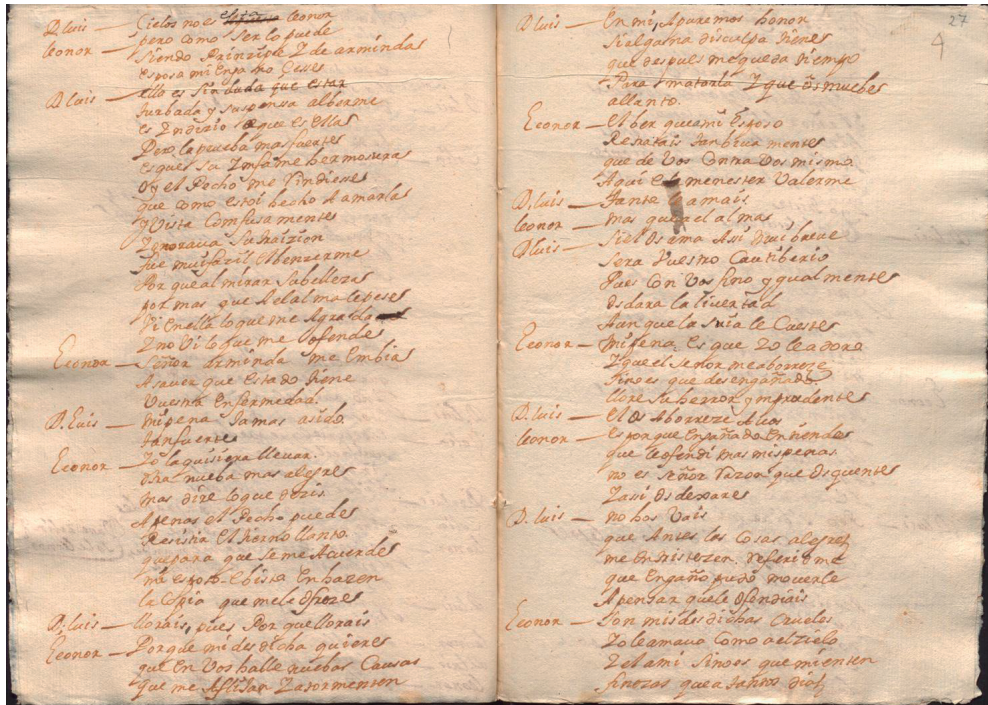 D. luis — Cielos no es esta leonor
leonor — pero como ser lo puede
siendo Prinzipe Z de arminda
esposa mi enpaño Cesse
D. luis — ello es sin duda que estar
turbada y suspensa alberme
es Yndizio que es ella
Pero la prueba mas fuerte
es que su Ynfame hermosura
oy el Pecho me Rindiese
que como estoi hecho a amarla
y Vista Confusamente
Ygnorava su traizion
fue mui fazil el benzerme
Por que al mirar su belleza
por mas que a el alma le pese
Vi en ella lo que me Agrada
Z no Vi lo que me ofende
Leonor — Señor arminda me embia
A saver que estado tiene
Vuestra enfermedad.
D. Luis — mi pena Jamas a sido
tan fuerte
Leonor — Yo la quisiera llevar
otra nueba mas alegre
mas dire lo que dezis
Apenas el Pecho puede
Resistir el tierno llanto
que para que se me Acuerde
mi esposo Ebista en hazen
la Copia que me le ofreze
D. luis — llorais, pues Por que llorais
Leonor — Porque mi desdicha quiere
que en Vos halle nuebas Causas
que me Aflijan Z atormenten
27
4
D luis — En mi, Apuremos honor
si alguna disculpa tiene
que despues me queda tiempo
Para matarla Z que os muebe
al llanto.
Leonor — el ber que a mi Esposo
Retratais tan bibamente
que de Vos Contra Vos mismo
Aqui es menester Valerme
D. luis — tanto le amais
leonor — mas que a el alma
D luis — si el os ama Asi mui breve
sera Vuestro Cautiberio
Pues Con Vos fino y igualmente
os dara la livertad
Aunque la suia le Cueste
Leonor — mi pena es que Yo le adoro
Z que el Señor me aborreze
sino es que desengañado
llore su herror ymprudente
D. luis — el os Aborreze A Vos
leonor — es porque engañado entiende
que le ofendi mas mis penas
no es Señor razon que os quente
Z asi os dexare
D. luis — no hos Vais
que Antes las Cosas alegres
me entristezen. Referidme
que engaño pudo moverle
A pensar que le ofendiais
Leonor — son mis desdichas Crueles
Yo le amava Como a el zielo
Z el a mi sino es que mienten
finezas que a tantos dias